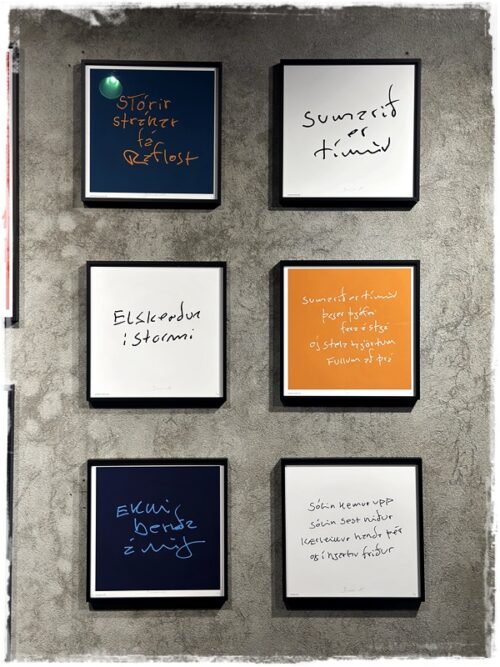 Stórir
strákar
fá
Raflost
Sumarið
er
tíminn
Elskendur
í stormi
Sumarið er tíminn
þegar þjófar
fara á stjá
og stela hjörtum
Fullum af þrá
Ekki
benda
á mig
Sólin kemur upp
Sólin sest niður
Kærleikur handa þér
og í hjarta friður